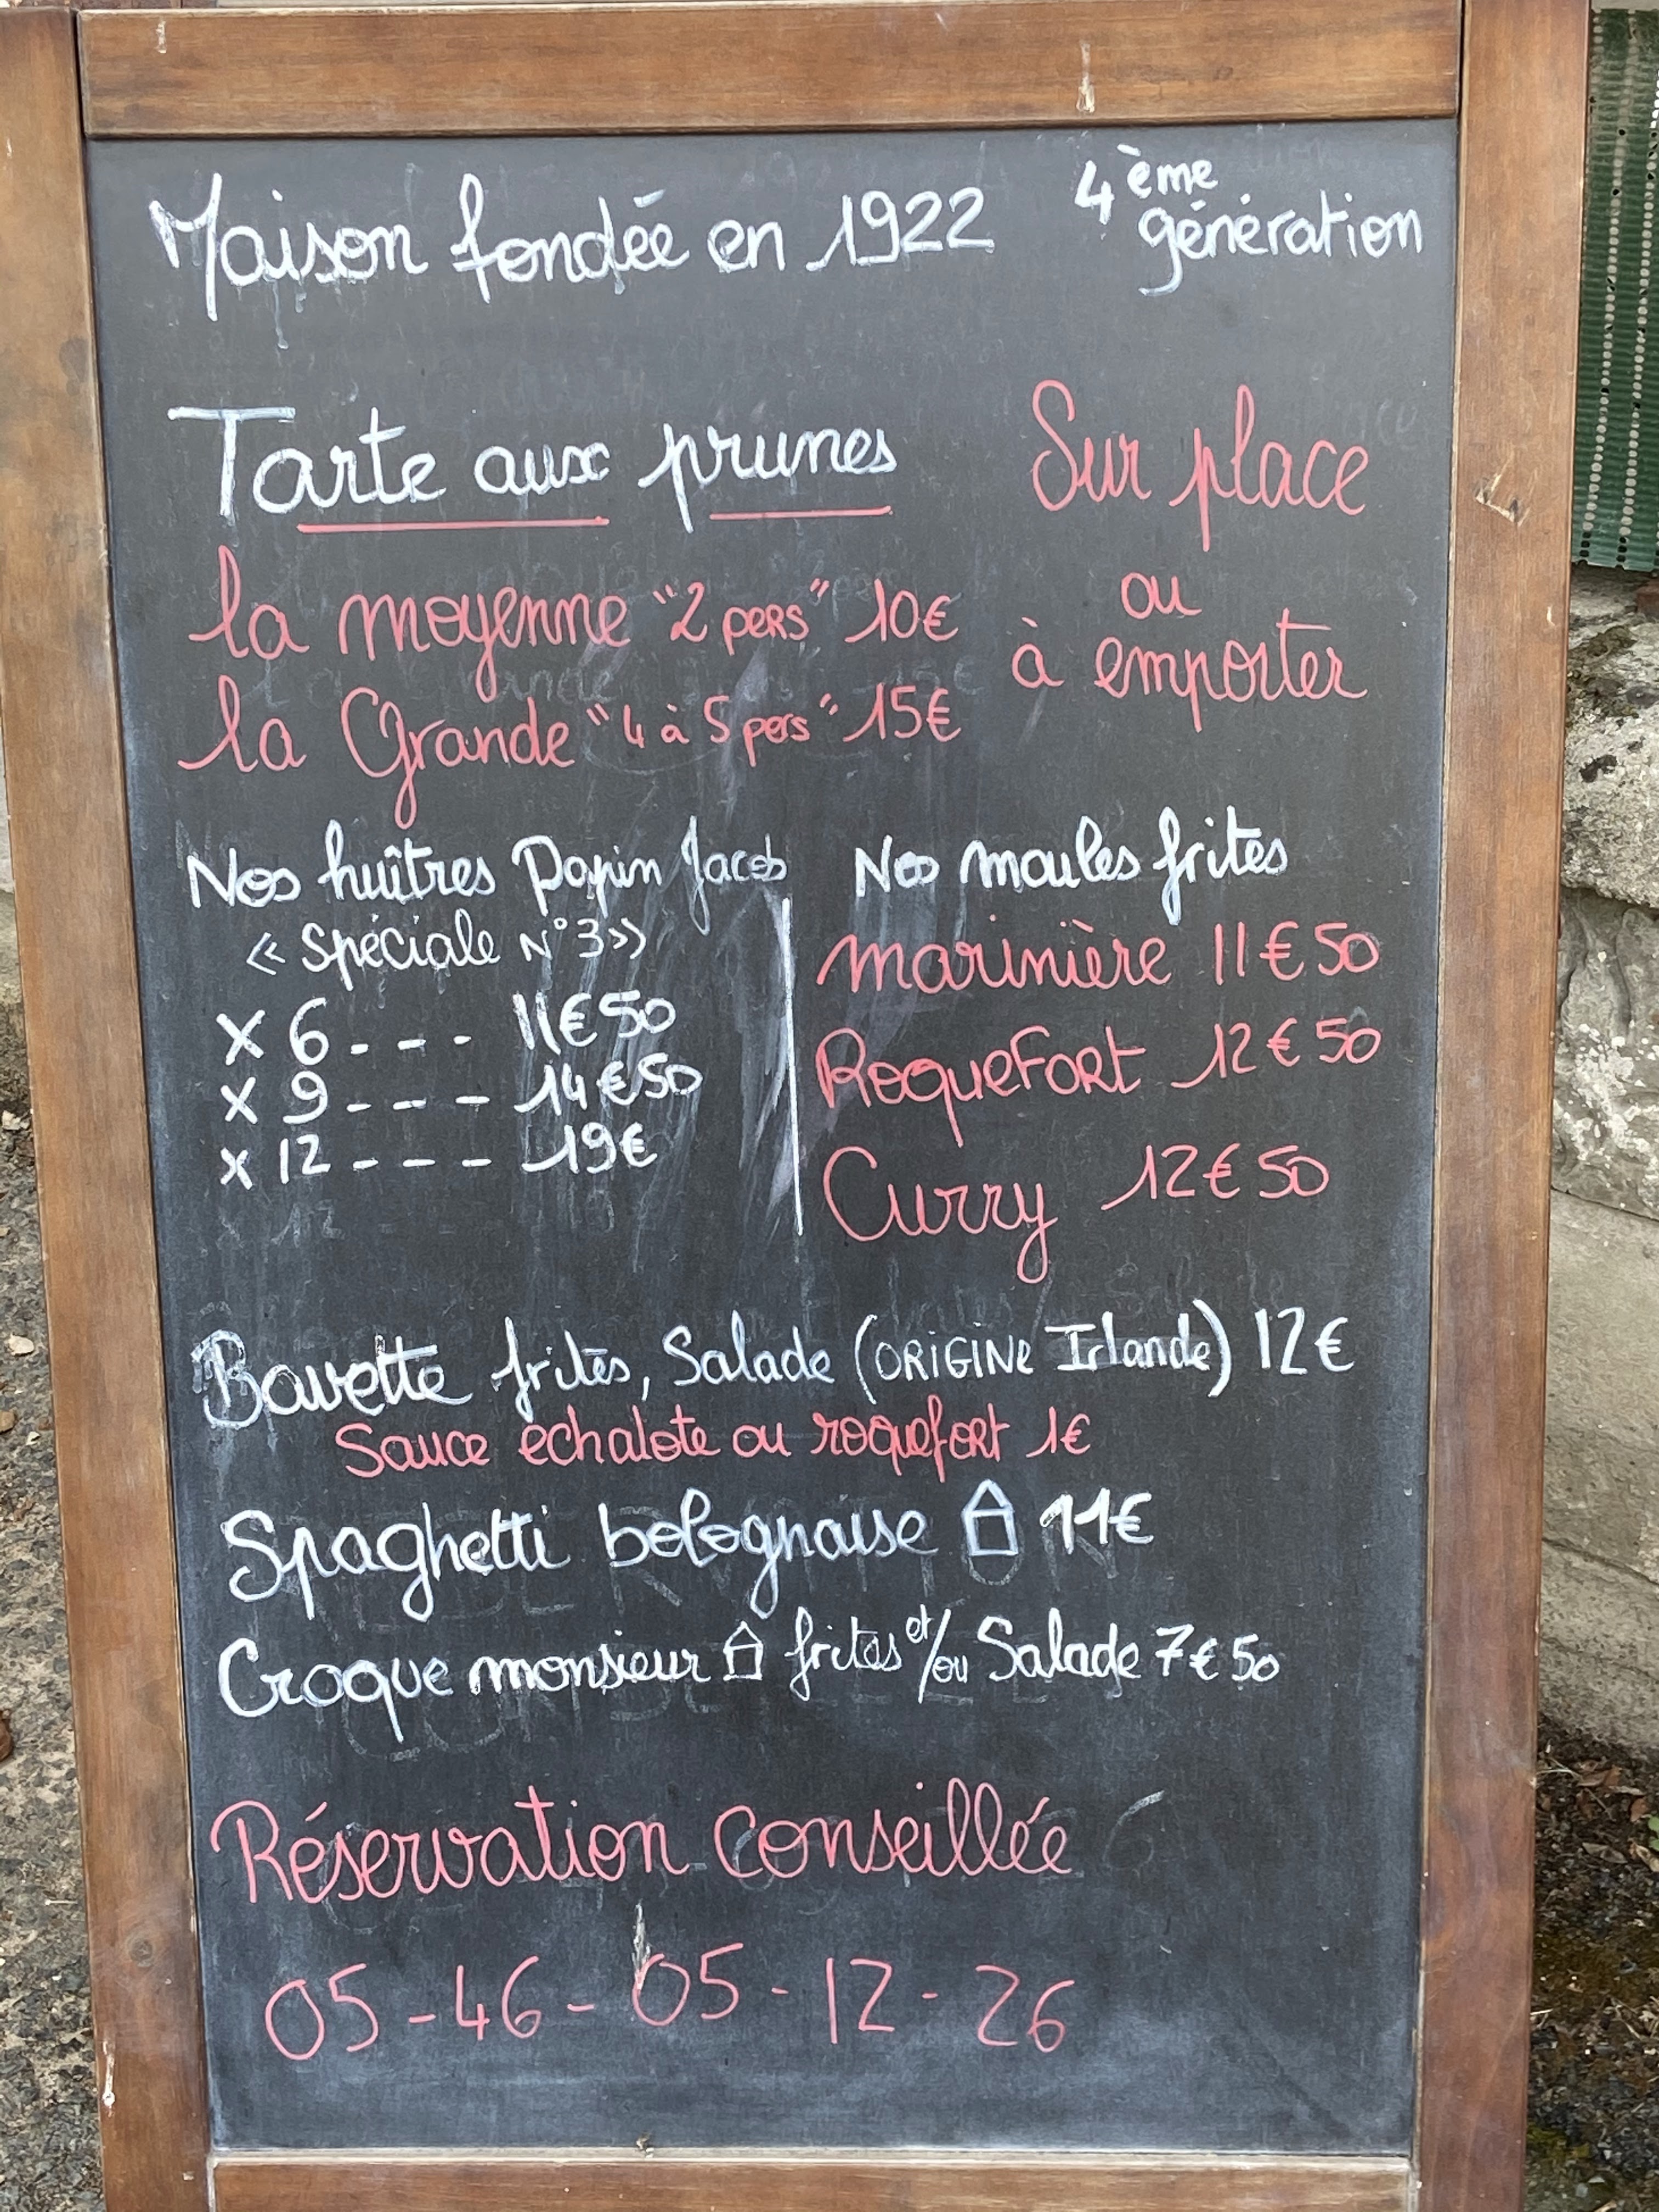 Maison fondée en 1922
4ème génération
Tarte aux prunes
la moyenne "2 pers" 10€
la Grande "4 à 5 pers" 15€
Sur place
ou
à emporter
Nos huîtres Papin Jacob
« Spéciale N°3 »
X 6 - - - 11€50
X 9 - - - - 14€50
X 12 - - - - 19€
Nos moules frites
marinière 11€50
Roquefort 12€50
Curry 12€50
Bavette frites, Salade (ORIGINE Irlande) 12€
Sauce echalote ou roquefort 1€
Spaghetti bolognaise 11€
Croque monsieur frites et/ou Salade 7€50
Réservation conseillée
05-46-05-12-26